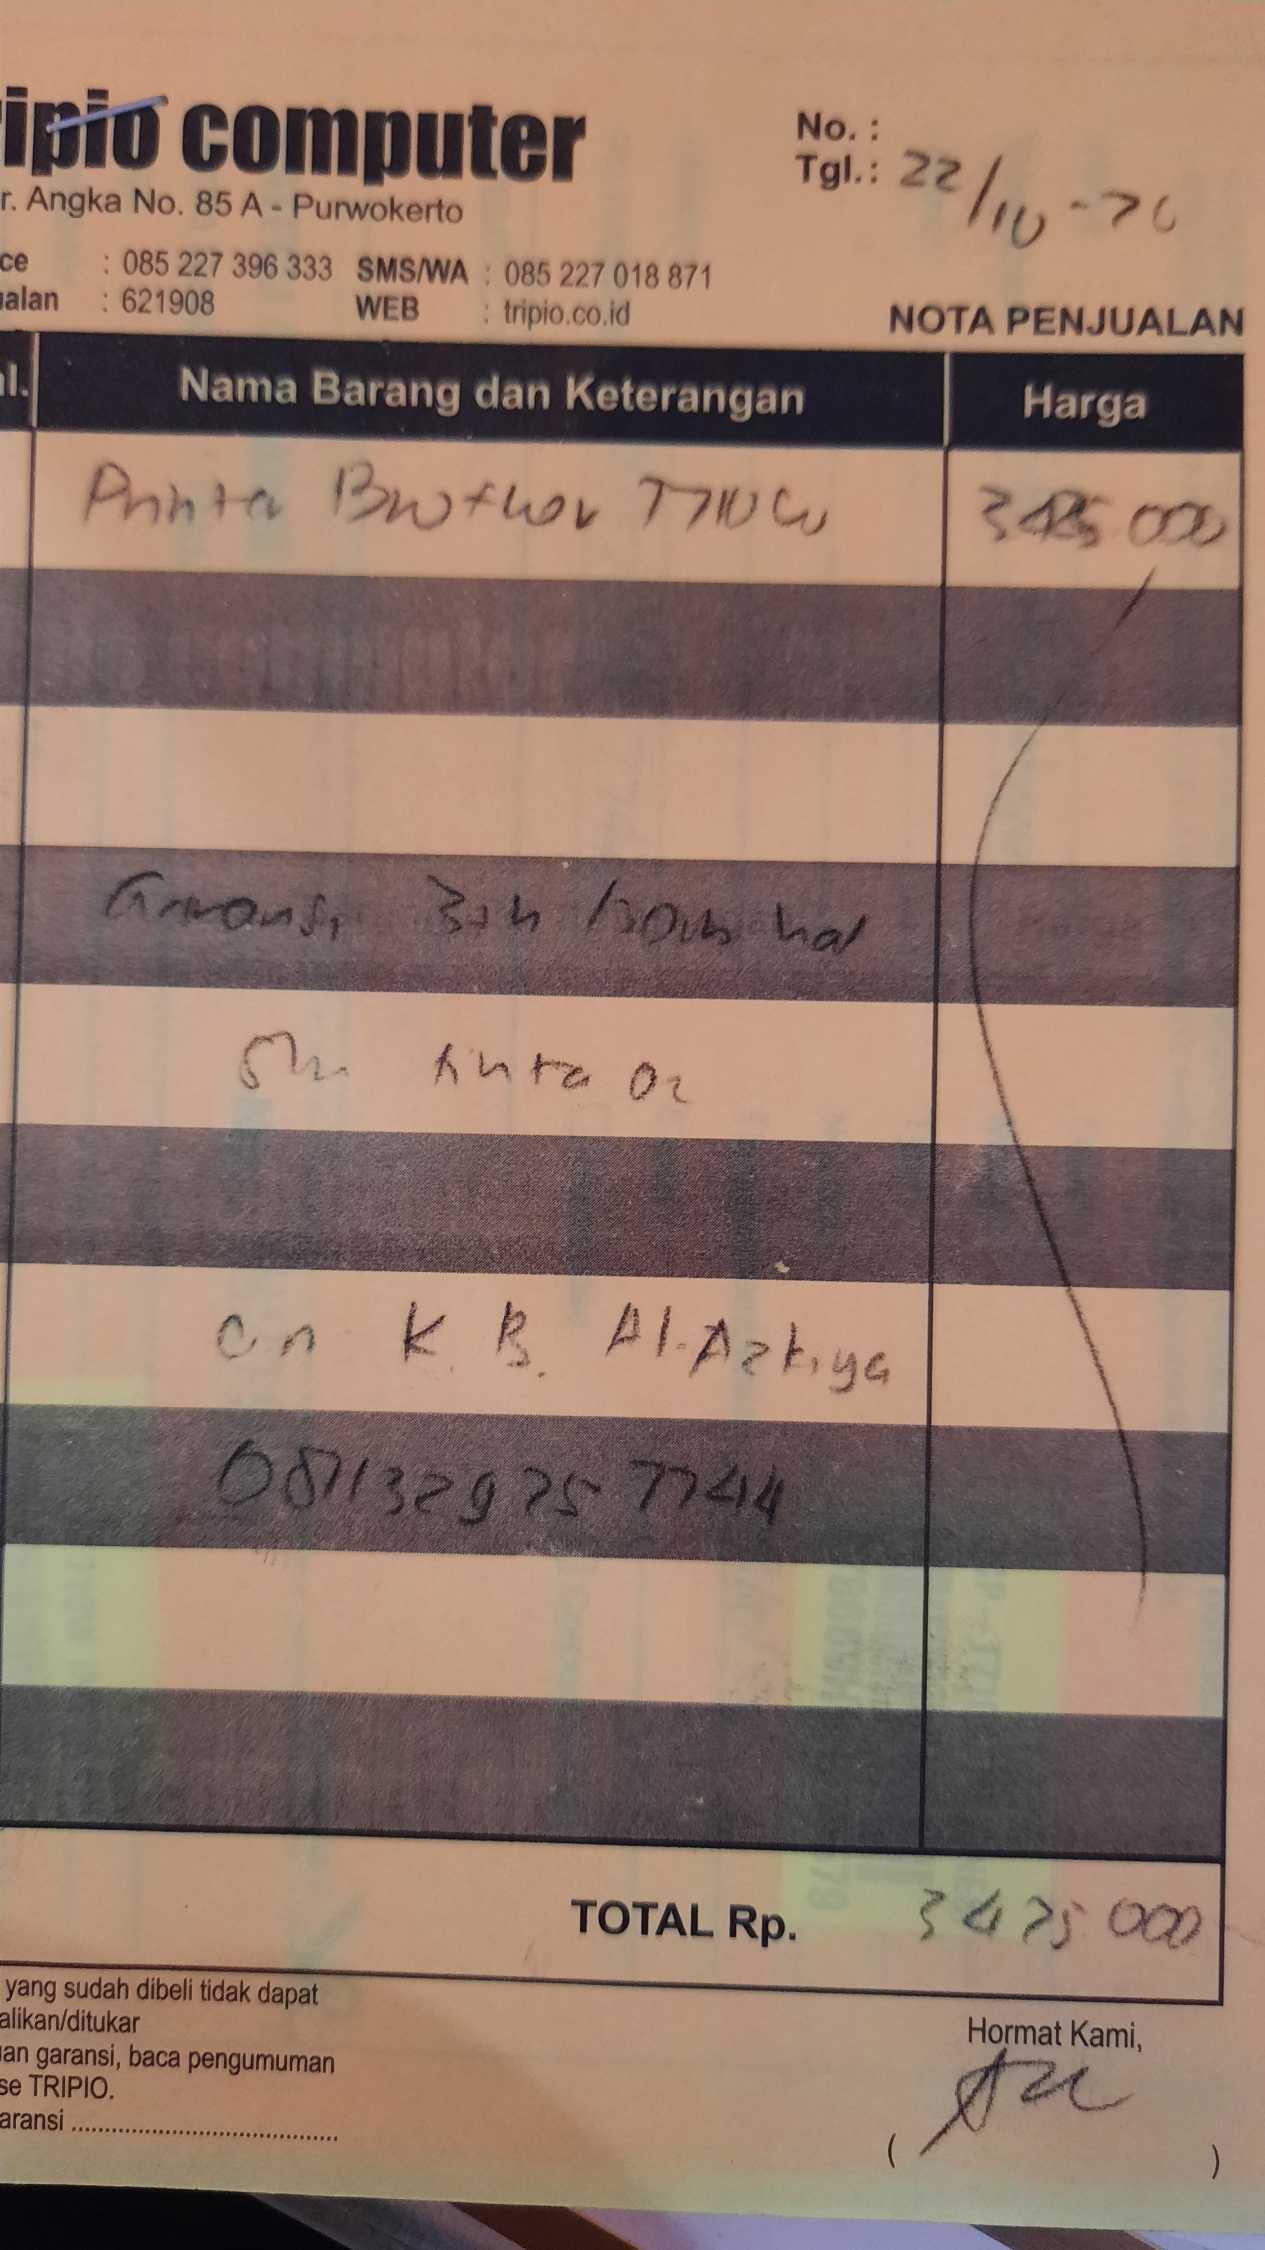 ripio computer
No. :
Tgl.: 22/10-20
r. Angka No. 85 A - Purwokerto
ce : 085 227 396 333 SMS/WA : 085 227 018 871
ualan : 621908 WEB : tripio.co.id
NOTA PENJUALAN
al. Nama Barang dan Keterangan Harga
Printer Brother T710W 000
Garansi 3th /30rb hal
tinta ori
an K. B. Al-Azkiya
TOTAL Rp. 3475 000
yang sudah dibeli tidak dapat
alikan/ditukar
uan garansi, baca pengumuman
se TRIPIO.
aransi ........................................
Hormat Kami,
( )